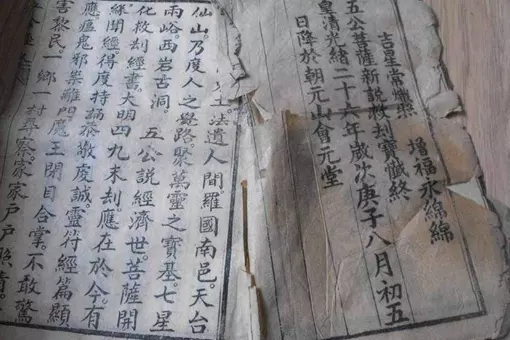 吉星常懺照 增福永綿綿
五公菩薩新說救刼寶懺終
皇清光緒二十六年歲次庚子八月初五
日降於朝元山會元堂
法遺人間。羅國南邑。天台
仙山乃度人之覺路。聚萬靈之寶基。七星
兩峪。西岩古洞。 五公說經濟世。菩薩開
化救刼經書。大明四九末刼應在於今。有
緣聞經。得度持誦。恭敬虔誠。靈符經篇顯
應。瘟鬼邪祟離門。魔王閉目合掌。不敢驚
害黎民。一鄉一村 察。家家戶戶